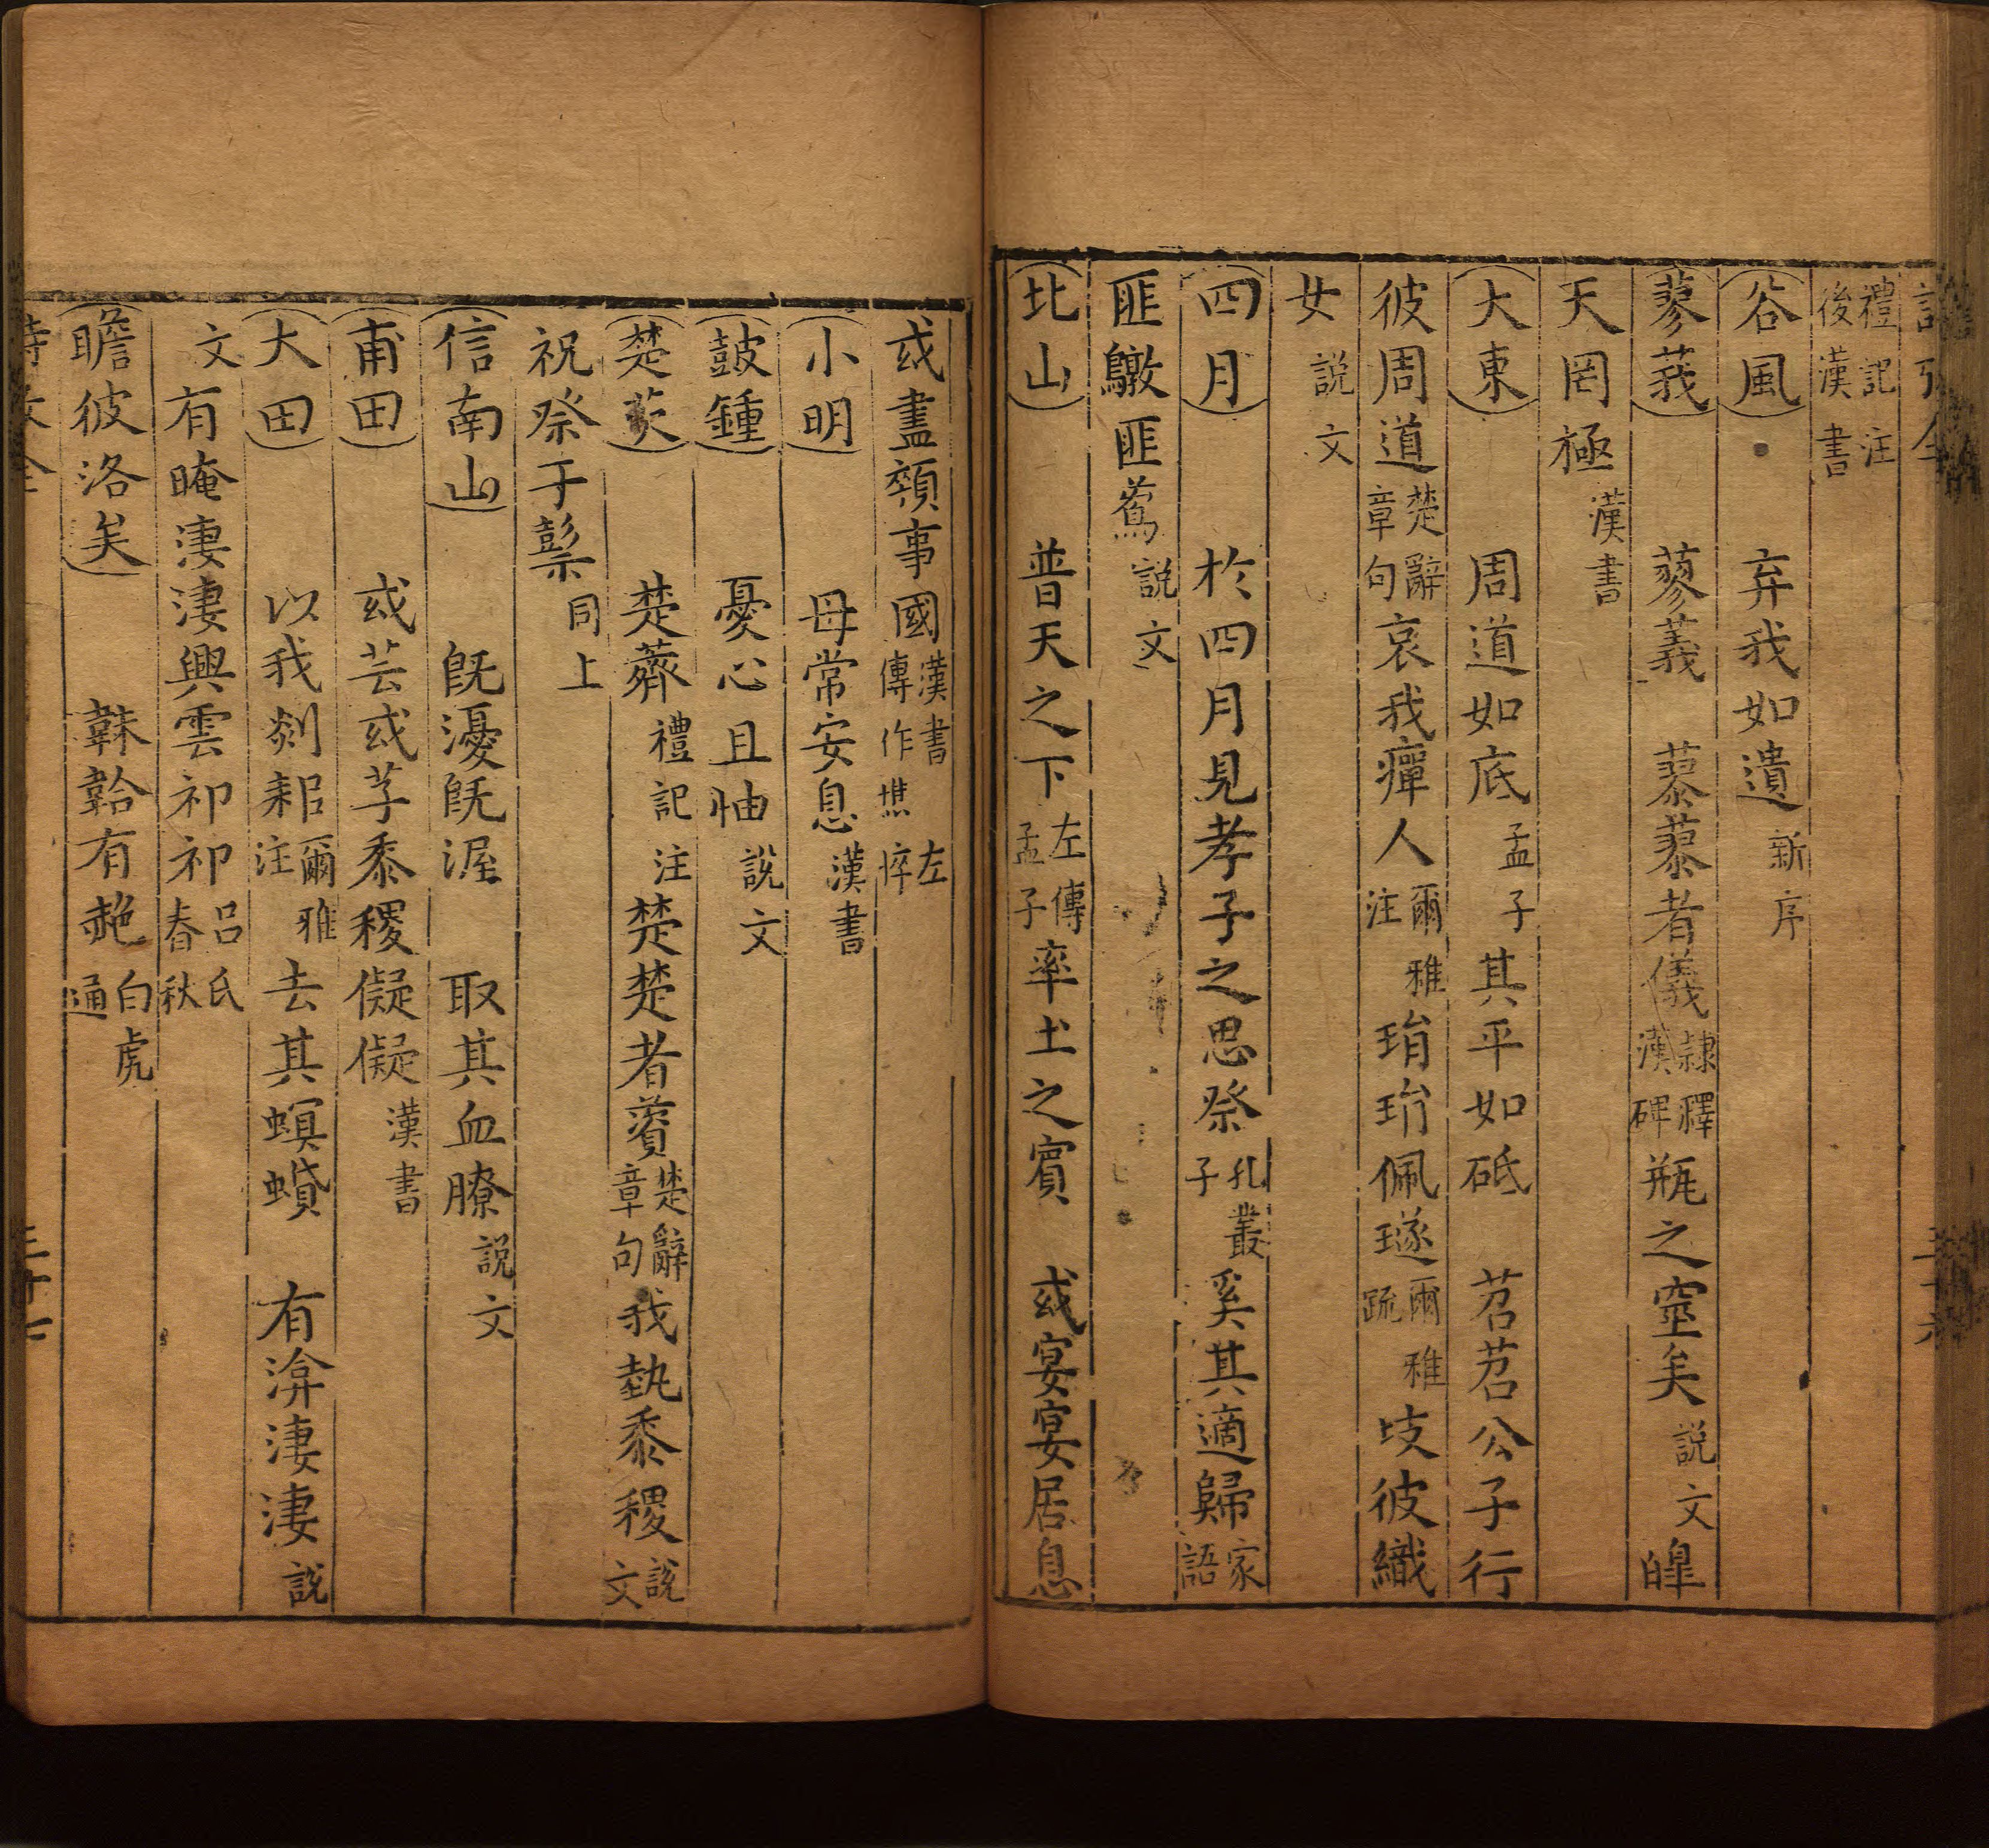 禮記注後漢書
谷風 弃我如遺新序
蓼莪 蓼義 蓼蓼者儀隸釋漢碑瓶之窒矣説文皡
天罔極漢書
大東 周道如底孟子其平如砥 苕苕公子行
彼周道楚辭章句哀我癉人爾雅注琄琄佩璲爾雅疏歧彼織
女説文
四月 於四月見孝子之思祭孔叢子奚其適歸家語
匪鷻匪蔦説文
北山 普天之下左傳孟子率土之賓 或宴宴居息
或盡頟事國漢書左傳作憔悴
小明 毋常安息漢書
鼓鍾 憂心且怞説文
楚茨 楚薺禮記注楚楚者薋楚辭章句我埶黍稷説文
祝祭于䰞同上
信南山 旣瀀旣渥 取其血膫説文
甫田 或芸或芓黍稷儗儗漢書
大田 以我剡耜爾雅注去其螟蟘 有渰淒淒説
文有晻淒淒興雲祁祁呂氏春秋
瞻彼洛矣 韎韐有赩白虎通